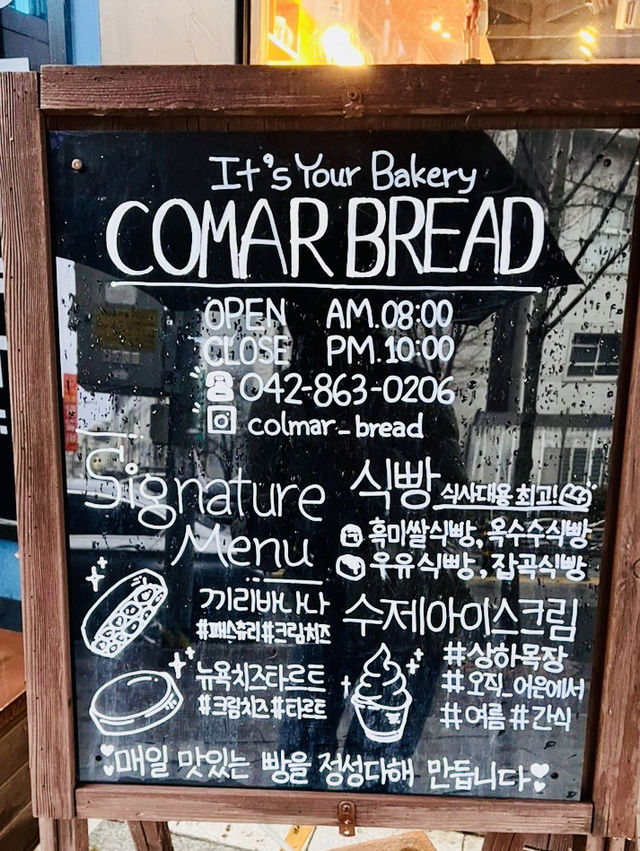 It's Your Bakery
COMAR BREAD
OPEN AM.08:00
CLOSE PM.10:00
042-863-0206
colmar_bread
Signature
Menu
끼리바나나
#패스츄리#크림치즈
뉴욕치즈타르트
#크림치즈 #타르트
식빵 식사대용 최고!
흑미쌀식빵, 옥수수식빵
우유식빵, 잡곡식빵
수제아이스크림
#상하목장
#오직_어은에서
#여름 #간식
매일 맛있는 빵을 정성다해 만듭니다